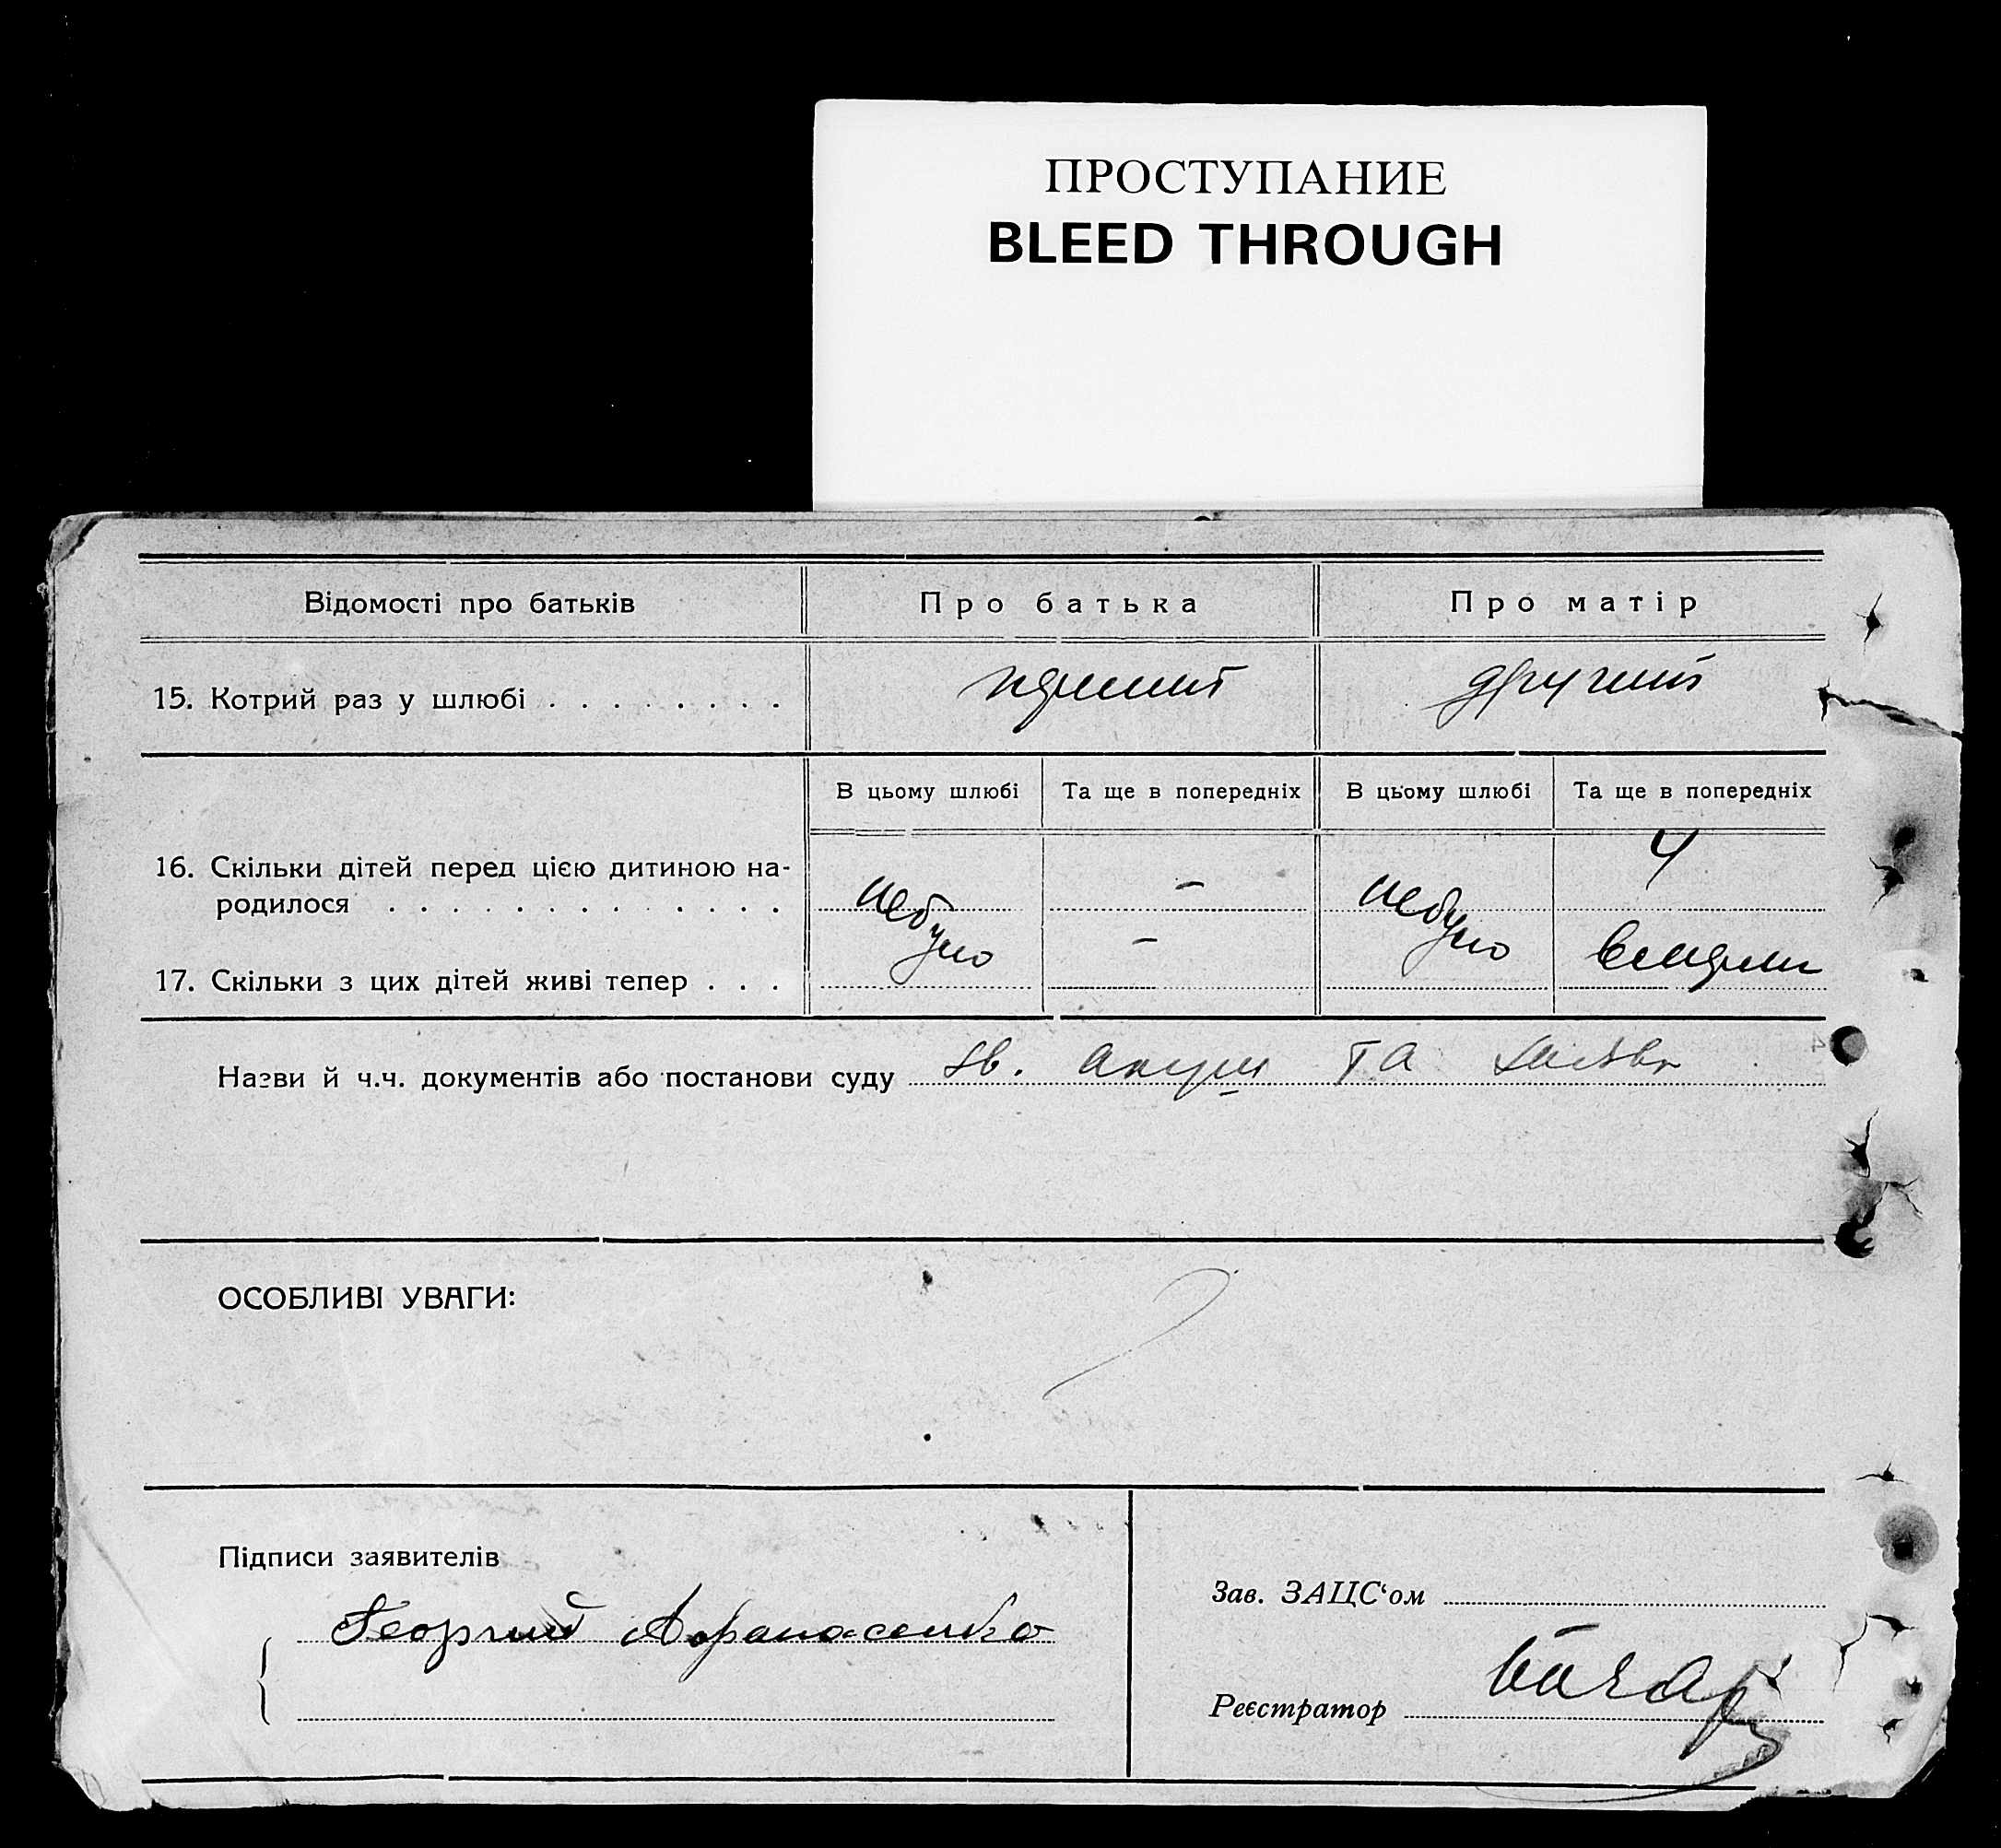 ПРОСТУПАНИЕ
BLEED THROUGH
Відомості про батьків
Про батька
Про матір
15. Котрий раз у шлюбі . . . . . . . .
перший
другий
В цьому шлюбі
Та ще в попередніх
В цьому шлюбі
Та ще в попередніх
16. Скільки дітей перед цією дитиною на-
родилося . . . . . . . . . . . . .
небуло
–
небуло
4
17. Скільки з цих дітей живі тепер . . .
–
вмерли
Назви й ч.ч. документів або постанови суду
св. акуш та заява
ОСОБЛИВІ УВАГИ:
Підписи заявителів
Георгий Афанасенко
Зав. ЗАЦС‘ом
Реєстратор